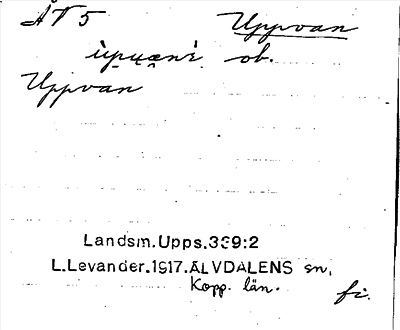 ÅT 5 Uppvan
ob.
Uppvan
Landsm.Upps.339:2
L.Levander.1917.ÄLVDALENS sn.
Kopp. län.
fi.